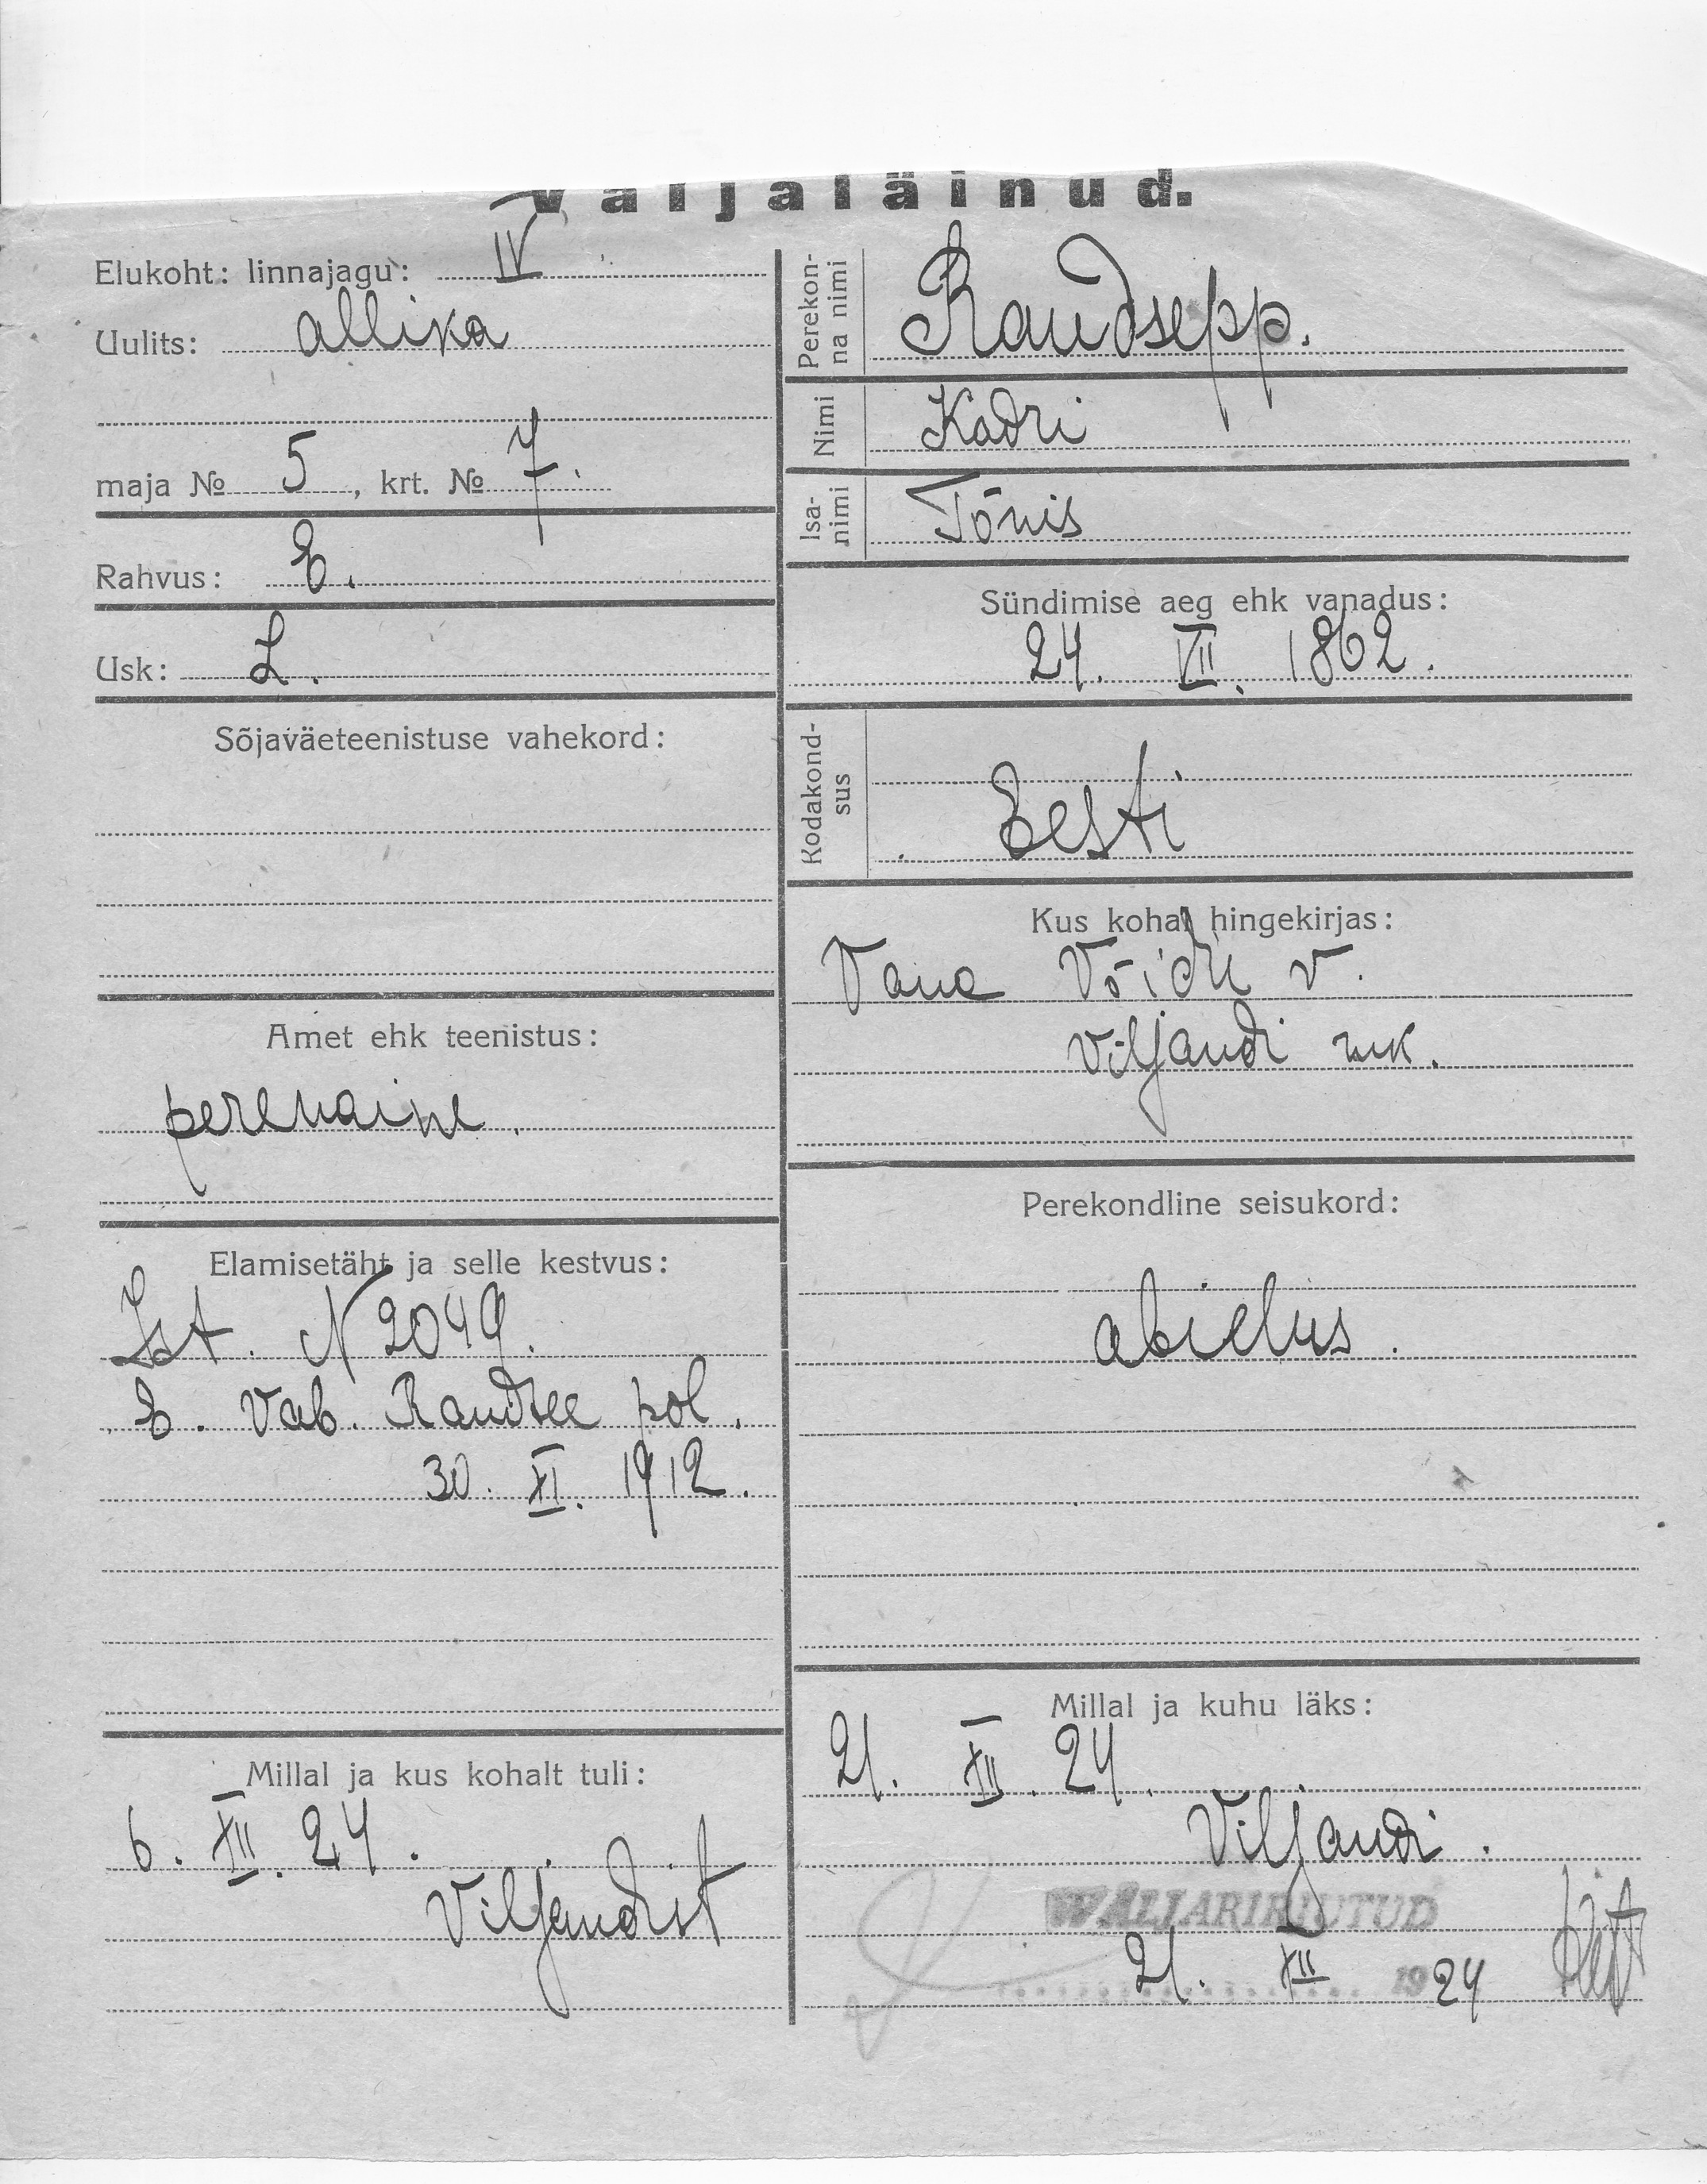 Väljaläinud.
Elukoht: linnajagu: IV
Uulits: Allika
maja № 5, krt. № 7.
Rahvus: E.
Usk: L.
Sõjaväeteenistuse vahekord:
Amet ehk teenistus:
perenaine.
Elamisetäht ja selle kestvus:
Ist. N 2049.
E. Vab. Raudtee pol.
30. XI. 1912.
Millal ja kus kohalt tuli:
6. XII. 24.
Viljandist
Perekonna nimi
Raudsepp.
Nimi
Kadri
Isanimi
Tõnis
Sündimise aeg ehk vanadus:
24. VII. 1862.
Kodakondsus
Eesti
Kus kohal hingekirjas:
Vana Võidu v.
Viljandi mk.
Perekondline seisukord:
abielus.
Millal ja kuhu läks:
21. XII. 24.
Viljandi.
WÄLJAKIRJUTUD
21. XII 1924